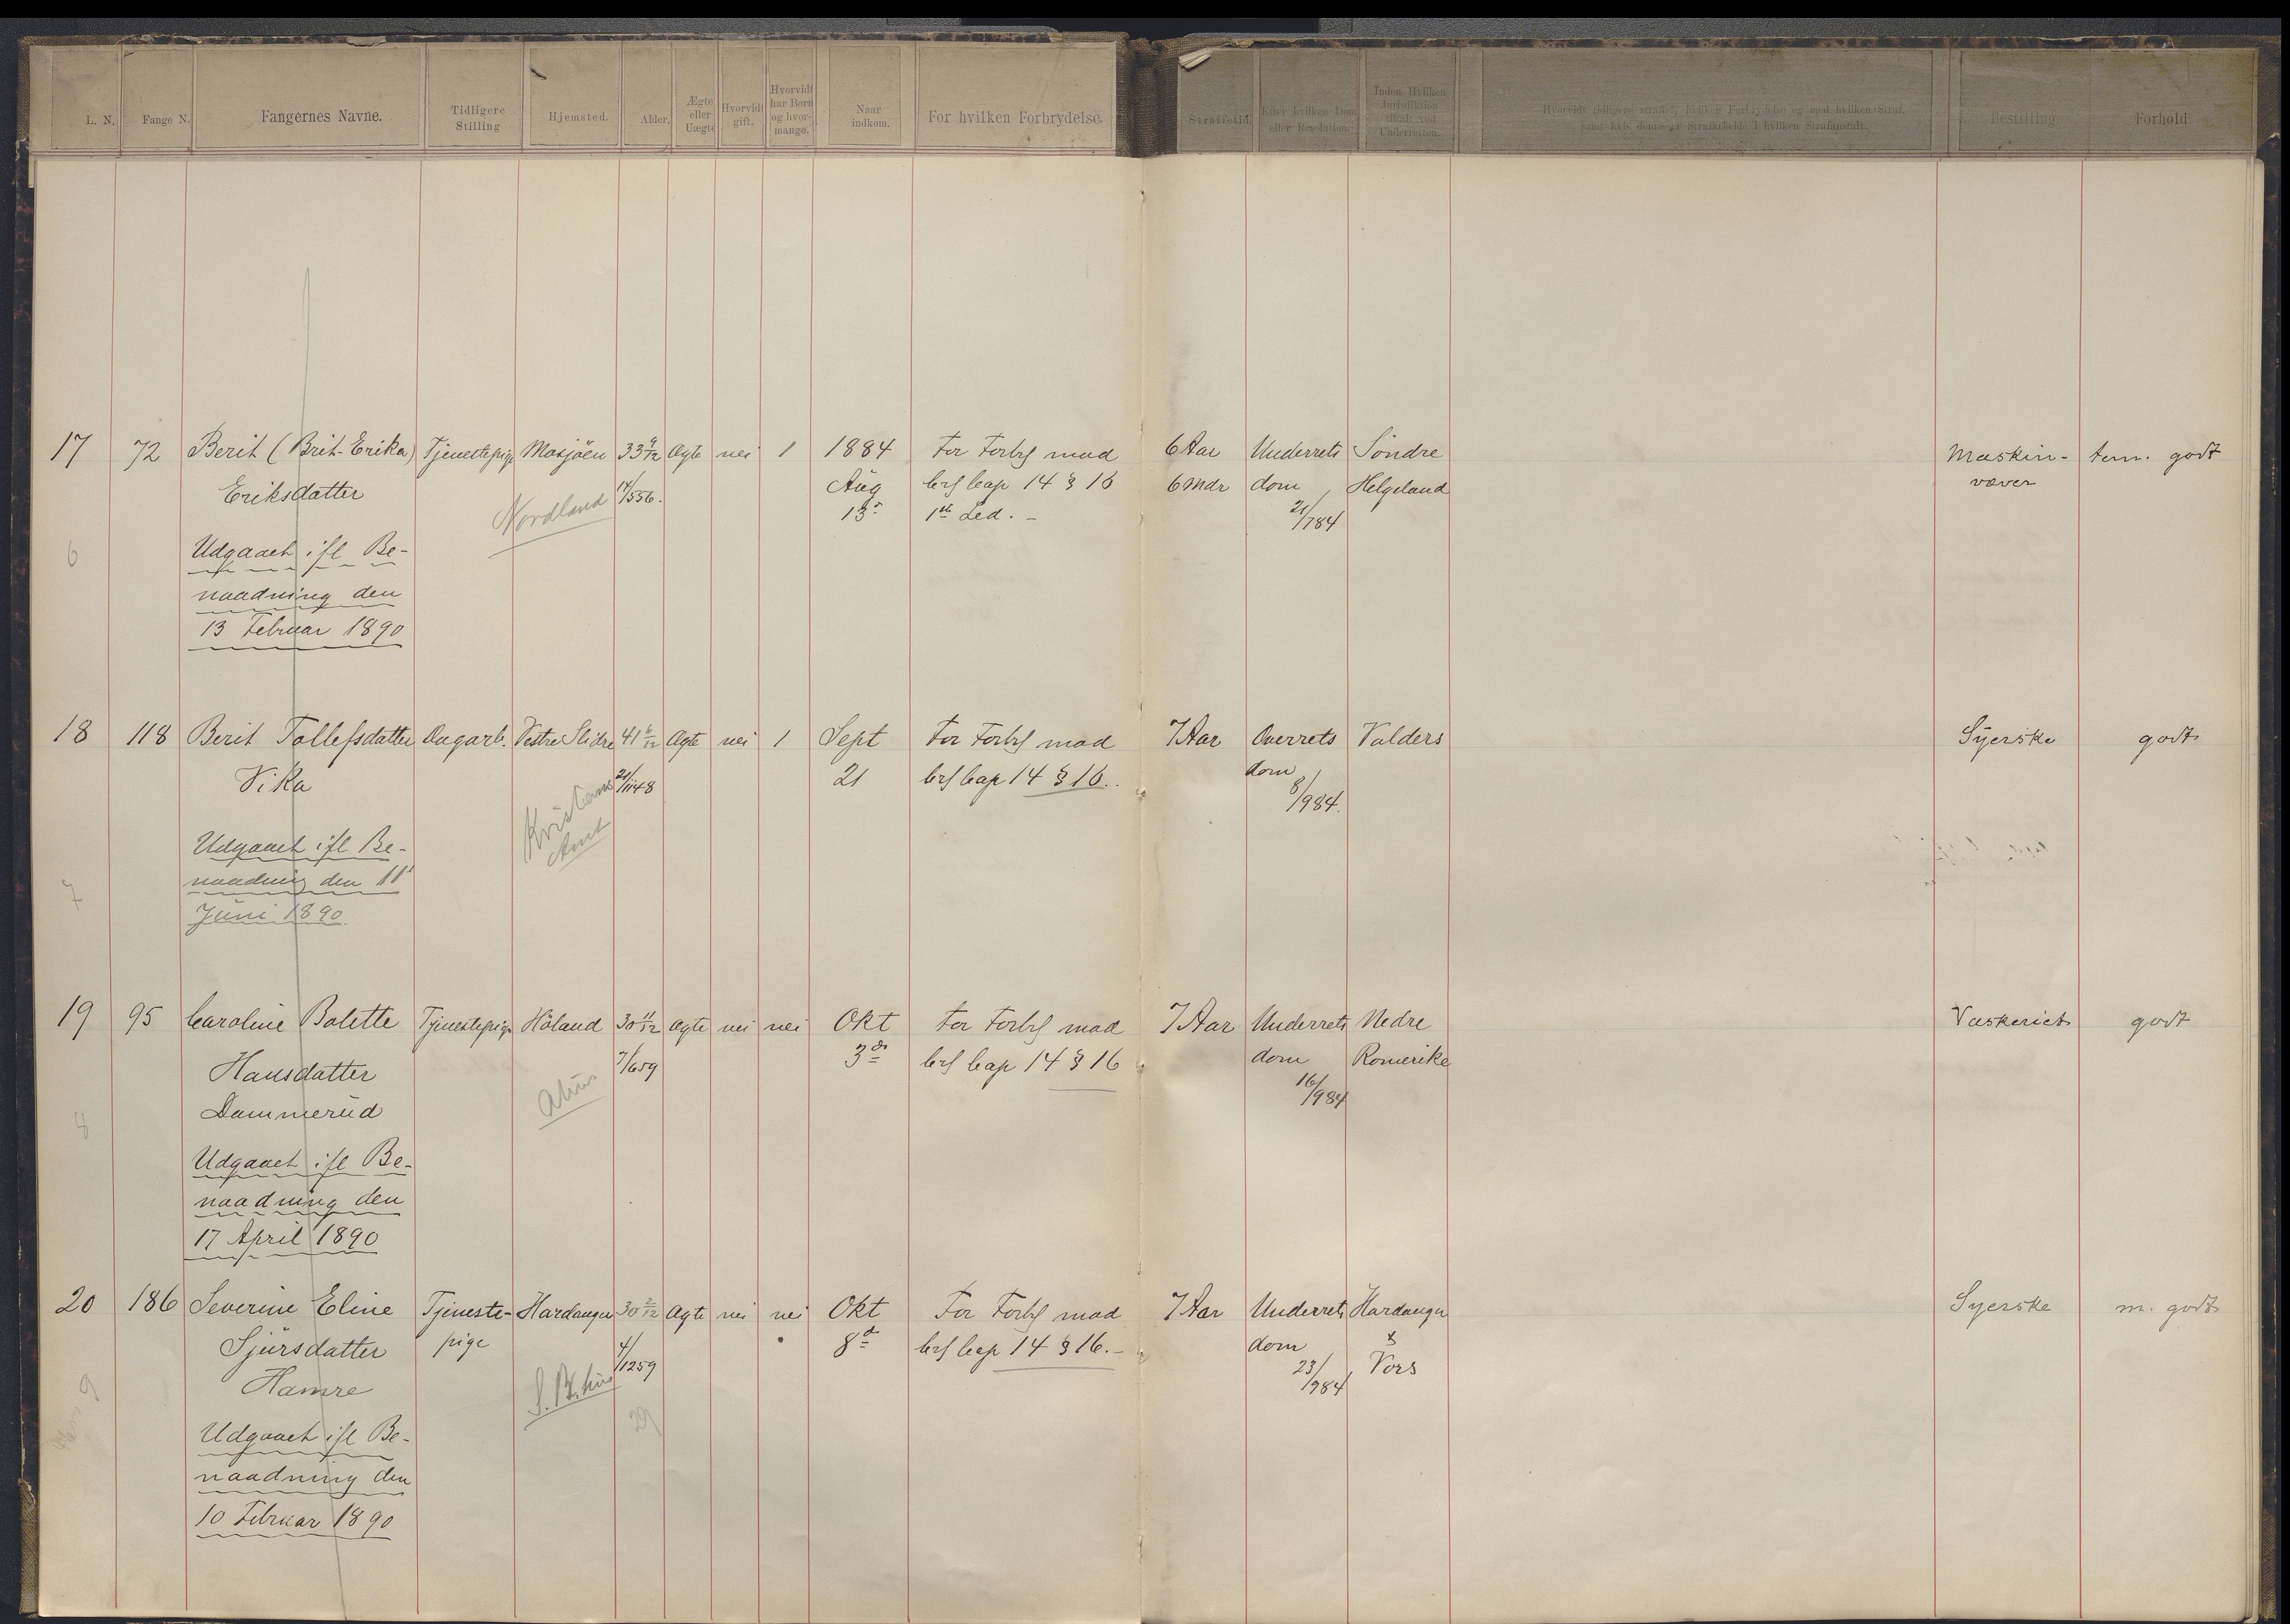 L. N.
Fange N.
Fangernes Navne.
Tidligere
Stilling
Hjemsted.
Alder.
Ægte
eller
Uægte
Hvorvidt
gift.
Hvorvidt
har Børn
og hvor-
mange.
Naar
indkom.
For hvilken Forbrydelse.
Straffetid.
Efter hvilken Dom
eller Resolution.
Inden Hvilken
Jurisdiktion
tiltalt ved
Underretten.
Hvorvidt tidligere straffet, hvilken Forbrydelse og med hvilken Straf,
samt hvis denne er Strafarbeide i hvilken Strafanstalt.
Bestilling
Forhold
17 72 Berit (Brit-Erika) Tjenestepige Mosjöen 33 9/12 Ægte nei 1 1884 For Forbr mod 6 Aar Underrets Söndre Maskin- tem. godt
Eriksdatter 17/556. Aug Crl Cap 14 § 16 6 Mdr dom Helgeland væver
Nordland 13 1ste Led. - 21/784
6 Udgaaet ifl Be-
naadning den
13 Februar 1890
18 118 Berit Tollefsdatter Dagarb. Vestre Slidre 41 6/12 Ægte nei 1 Sept For Forbr mod 7 Aar Overrets Valders Syerske godt
Vika 21/1148 21 Crl Cap 14 § 16. dom
Kristians 8/984.
Amt
Udgaaet ifl Be-
7 naadning den 11
Juni 1890
19 95 Caroline Bolette Tjenestepige Höland 30 11/12 Ægte nei nei Okt For Forbr mod 7 Aar Underrets Nedre Vaskeriet godt
Hansdatter 7/659 3die Crl Cap 14 § 16 dom Romerike
Dammerud Ahus 16/984
8
Udgaaet ifl Be-
naadning den
17 April 1890
20 186 Severine Eline Tjeneste- Hardanger 30 2/12 Ægte nei nei Okt For Forbr mod 7 Aar Underrets Hardanger Syerske m. godt
Sjursdatter pige 4/1259 8d Crl Cap 14 § 16. - dom &
Hamre S. B. hus 23/984 Vors
9 29
Udgaaet ifl Be-
naadning den
10 Februar 1890